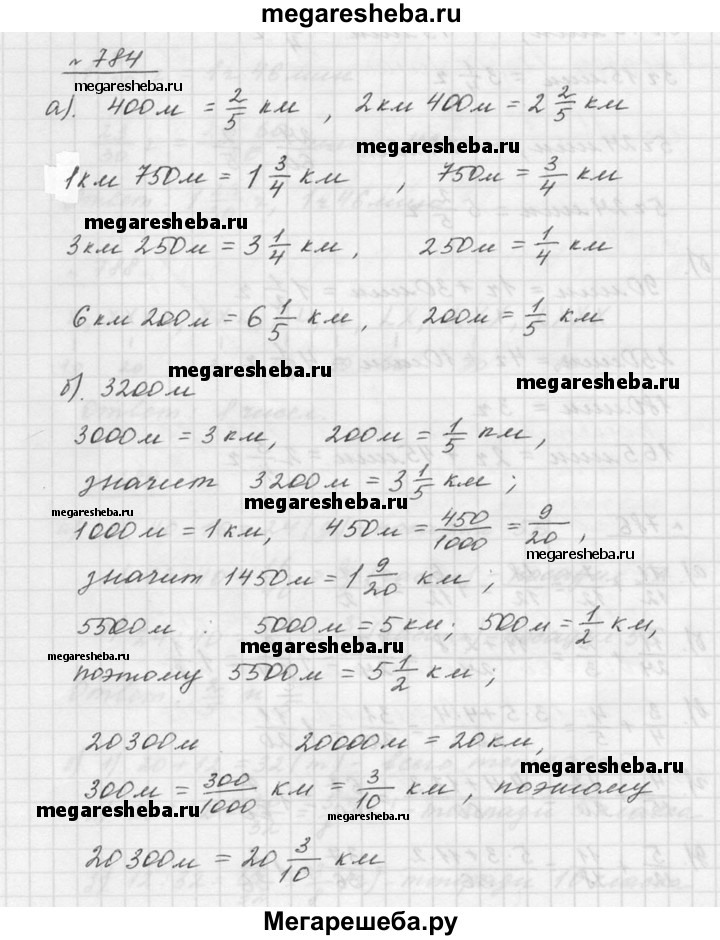 megaresheba.ru
№ 784
megaresheba.ru
а). 400м = 2/5 км , 2км 400м = 2 2/5 км
megaresheba.ru
1км 750м = 1 3/4 км , 750м = 3/4 км
megaresheba.ru
3км 250м = 3 1/4 км , 250м = 1/4 км
6км 200м = 6 1/5 км, 200м = 1/5 км
megaresheba.ru
megaresheba.ru
б). 3200м
3000м = 3км, 200м = 1/5 км,
значит 3200м = 3 1/5 км ;
megaresheba.ru
megaresheba.ru
1000м = 1км, 450м = 450/1000 = 9/20 ,
megaresheba.ru
значит 1450м = 1 9/20 км ;
5500м : 5000м = 5км; 500м = 1/2 км,
megaresheba.ru
megaresheba.ru
поэтому 5500м = 5 1/2 км ;
20300м 20000м = 20км,
megaresheba.ru
300м = 300/1000 км = 3/10 км , поэтому
megaresheba.ru
megaresheba.ru
20300м = 20 3/10 км
Мегарешеба.ру